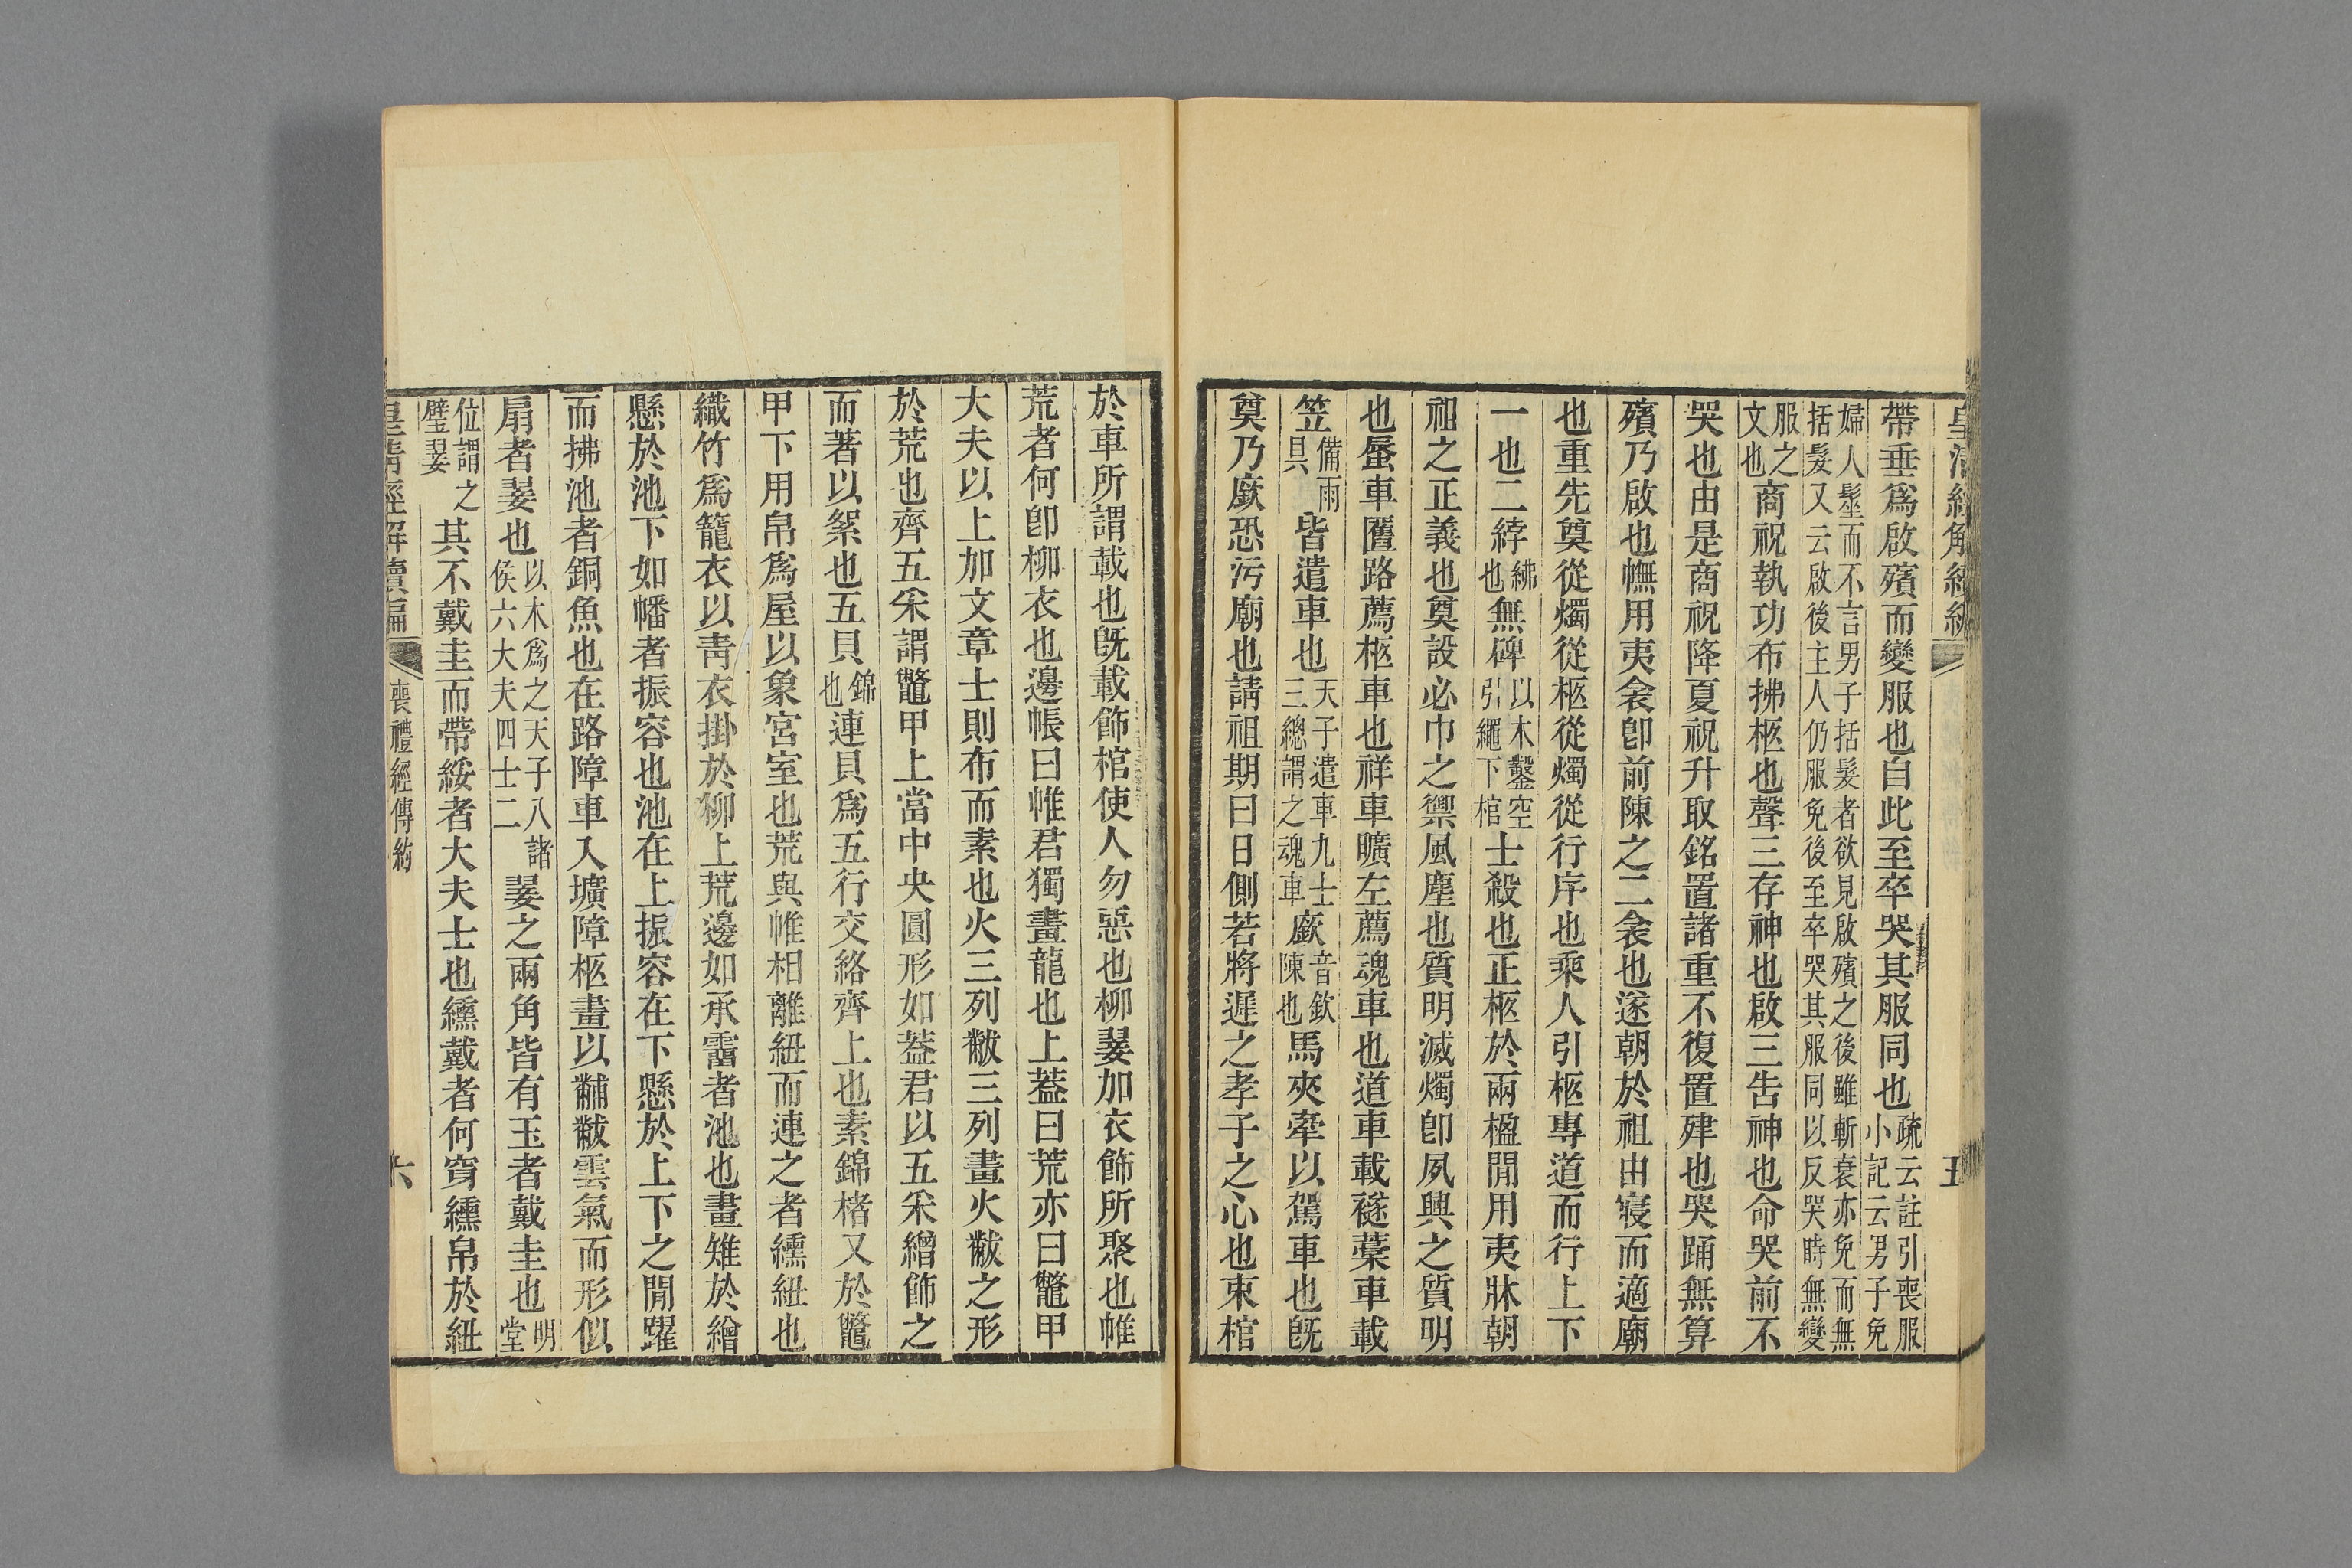 皇清經解續編
五
帶垂爲啟殯而變服也自此至卒哭其服同也疏云註引喪服小記云男子免
婦人髽而不言男子括髮者欲見啟殯之後雖斬衰亦免而無括髮又云啟後主人仍服免後至卒哭其服同以反哭時無變
服之文也商祝執功布拂柩也聲三存神也啟三告神也命哭前不
哭也由是商祝降夏祝升取銘置諸重不復置肂也哭踊無算
殯乃啟也幠用夷衾卽前陳之二衾也遂朝於祖由寢而適廟
也重先奠從燭從柩從燭從行序也乘人引柩專道而行上下
一也二綍紼也無碑以木鑿空引繩下棺士殺也正柩於兩楹閒用夷牀朝
祖之正義也奠設必巾之禦風塵也質明滅燭卽夙興之質明
也蜃車匶路薦柩車也祥車曠左薦魂車也道車載襚藁車載
笠備雨具皆遣車也天子遣車九士三總謂之魂車廞音欽陳也馬夾牽以駕車也旣
奠乃廞恐污廟也請祖期曰日側若將遲之孝子之心也束棺
於車所謂載也旣載飾棺使人勿惡也柳翣加衣飾所聚也帷
荒者何卽柳衣也邊帳曰帷君獨畫龍也上葢曰荒亦曰鼈甲
大夫以上加文章士則布而素也火三列黻三列畫火黻之形
於荒也齊五采謂鼈甲上當中央圓形如葢君以五采繒飾之
而著以絮也五貝錦也連貝爲五行交絡齊上也素錦褚又於鼈
甲下用帛爲屋以象宮室也荒與帷相離紐而連之者纁紐也
織竹爲籠衣以靑衣掛於柳上荒邊如承霤者池也畫雉於繒
懸於池下如幡者振容也池在上振容在下懸於上下之閒躍
而拂池者銅魚也在路障車入壙障柩畫以黼黻雲氣而形似
扇者翣也以木爲之天子八諸侯六大夫四士二翣之兩角皆有玉者戴圭也明堂
位謂之璧翣其不戴圭而帶綏者大夫士也纁戴者何穿纁帛於紐
皇清經解續編
喪禮經傳約
六